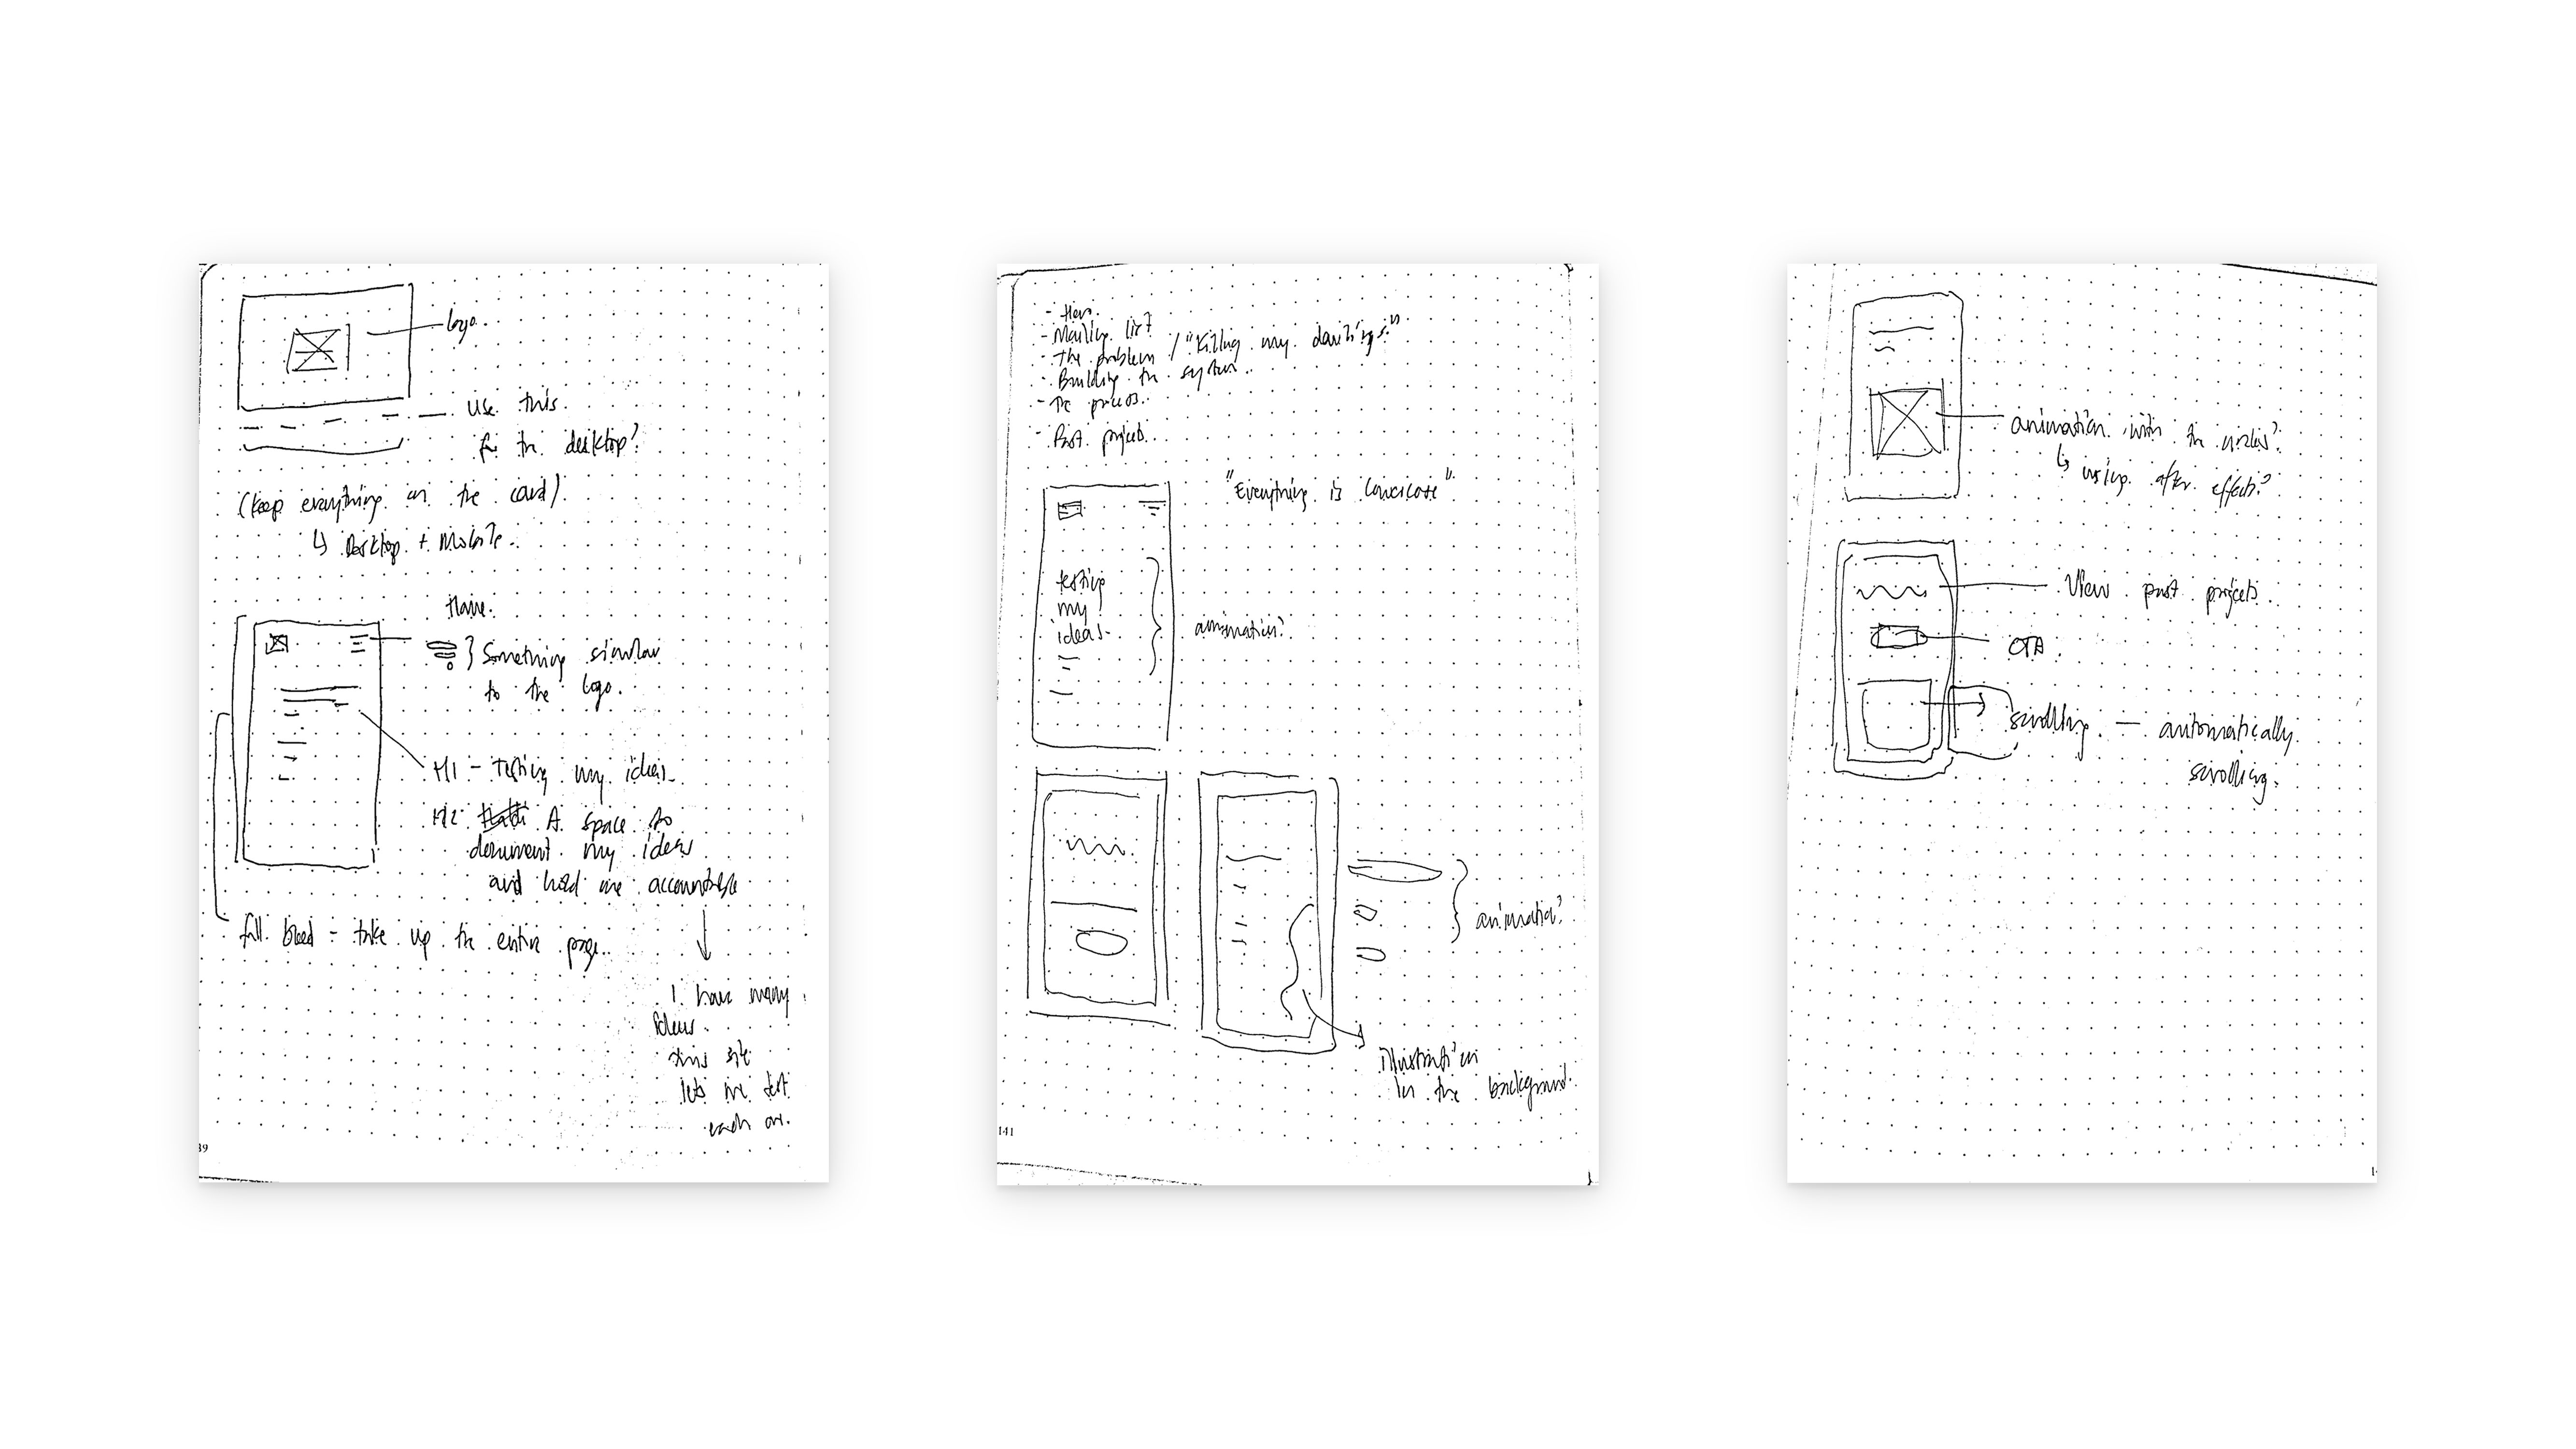 logo.
use this
for the desktop?
(keep everything on the card)
↳ Desktop + Mobile.
} Something similar
to the logo.
H1 - Testing my ideas.
H2 A space to
document my ideas
and hold me accountable
full bleed - take up the entire page.
I have many
ideas.
this site
lets me test
each one.
39
- Hero.
- Mailing list
- The problem / "Killing my darlings"
- Building the system.
- The process.
- Past projects.
"Everything is
testing
my
ideas.
animation?
animation?
illustration
in the background.
141
animation with the
↳ using after effects?
View past projects.
CTA.
scrolling. — automatically
scrolling.